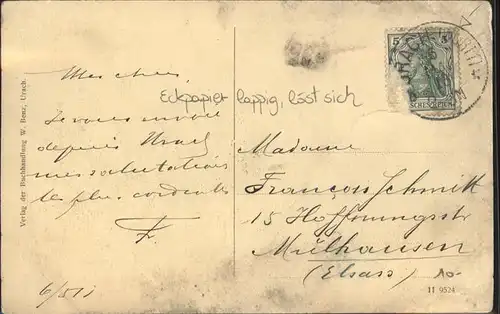 Mes chers,
Eckpapier lappig, löst sich
Je vous envoie
depuis Urach
mes salutations
les plus cordiales
F.
6/5 11
Madame
François Schmitt
15 Hoffnungsstr
Mülhausen
(Elsass)
10.-
11 9524
Verlag der Buchhandlung W. Benz, Urach.
5 5
URACH